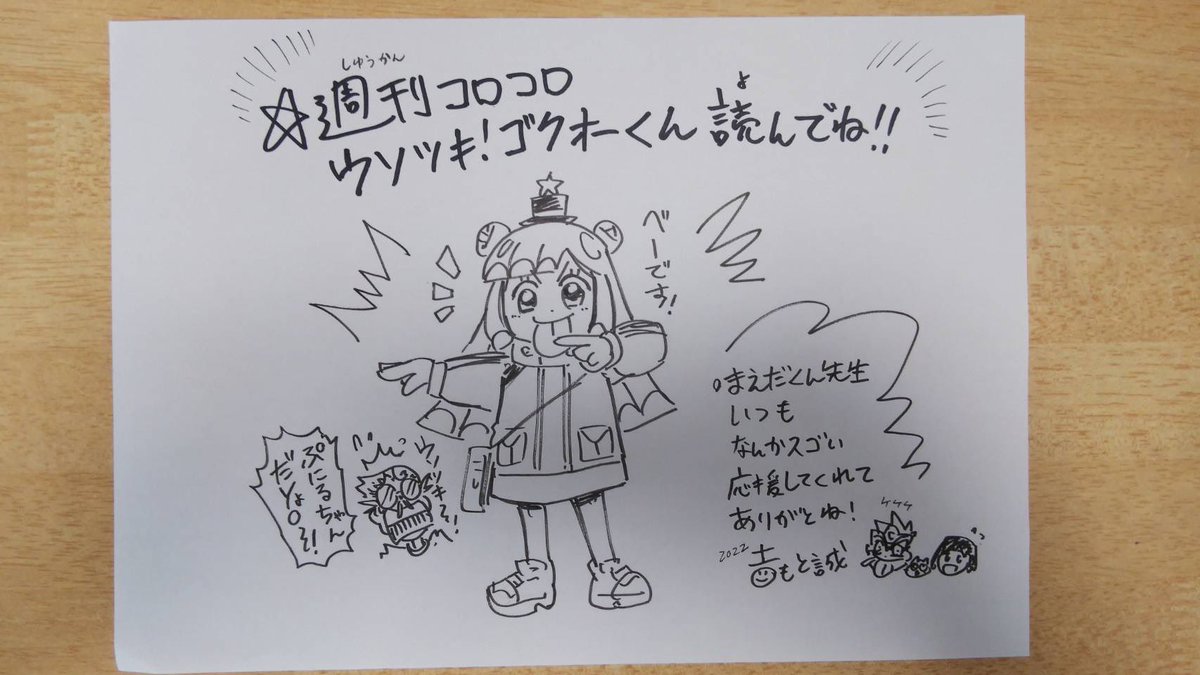 ☆週刊コロコロ
しゅうかん
ウソツキ!ゴクオーくん 読んでね!!
よ
べーです!
ぷにるちゃん
だYoぉ!
まえだくん先生
いつも
なんかスゴい
応援してくれて
ありがとね!
ケケケ
2022 吉もと誠